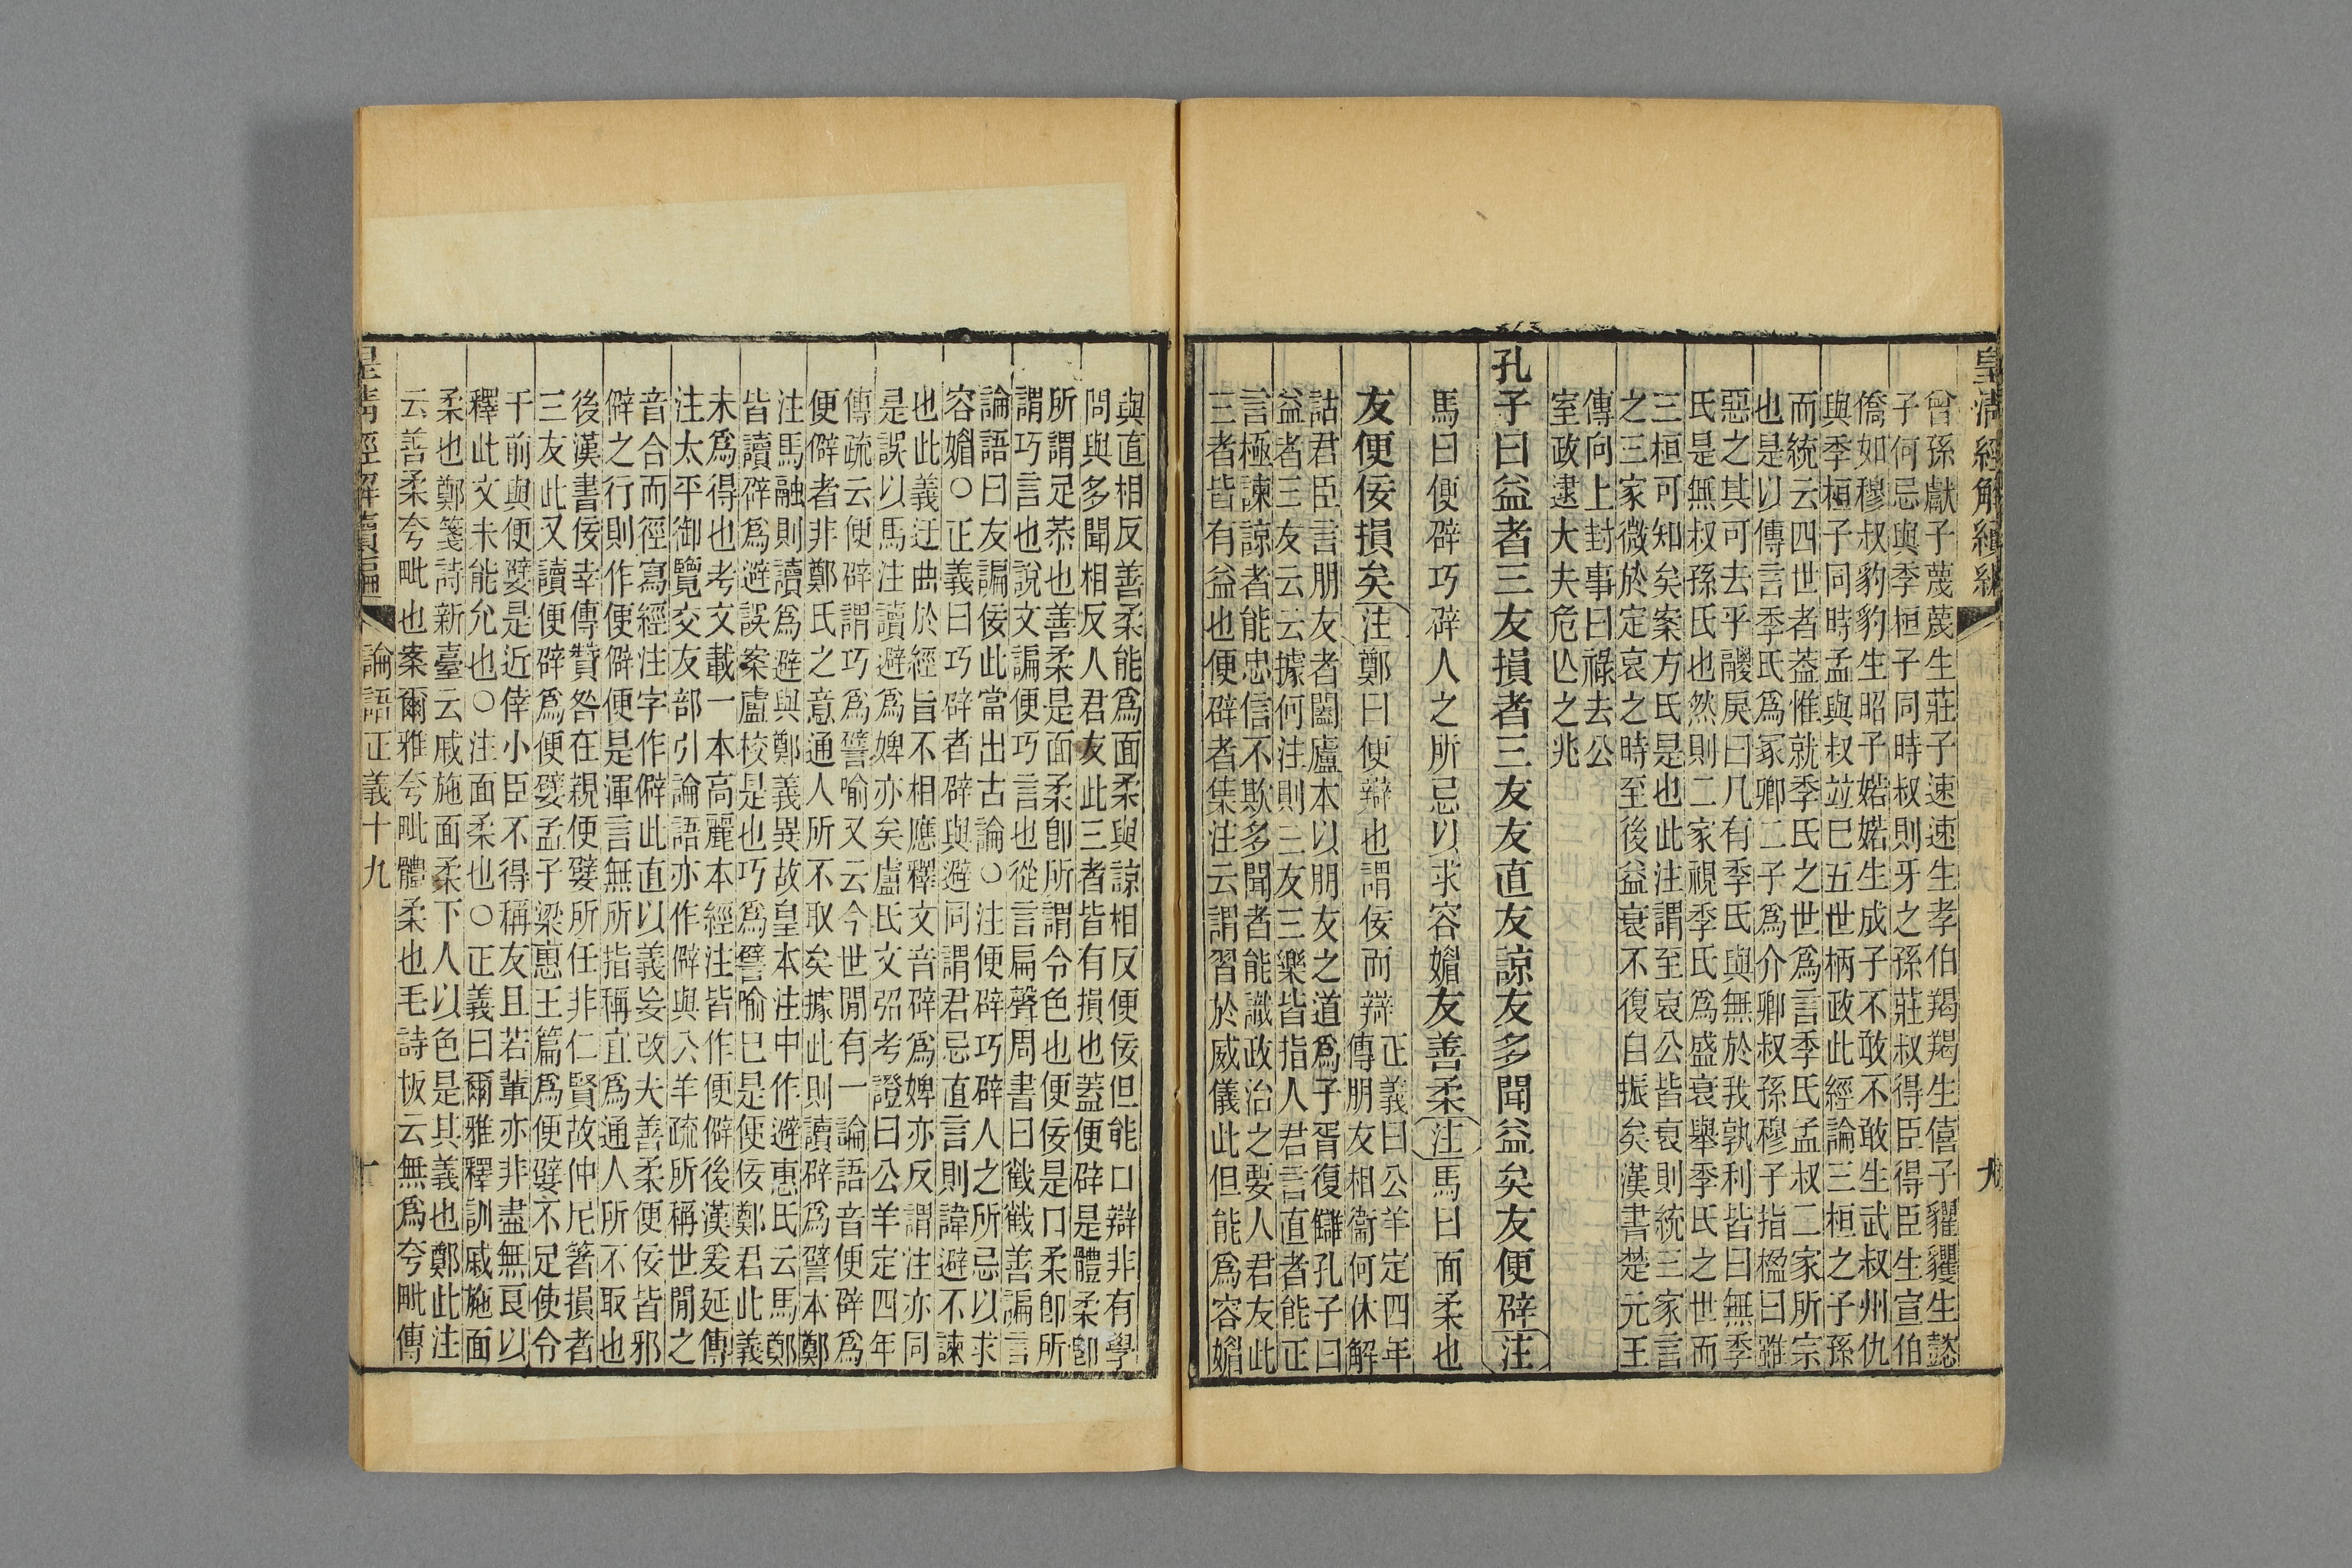 皇清經解續編
九
曾孫獻子蔑蔑生莊子速速生孝伯羯羯生僖子貜貜生懿
子何忌與季桓子同時叔則牙之孫莊叔得臣得臣生宣伯
僑如穆叔豹豹生昭子婼婼生成子不敢不敢生武叔州仇
與季桓子同時孟與叔竝已五世柄政此經論三桓之子孫
而統云四世者葢惟就季氏之世爲言季氏孟叔二家所宗
也是以傳言季氏爲冢卿二子爲介卿叔孫穆子指楹曰雖
惡之其可去乎鬷戾曰凡有季氏與無於我孰利皆曰無季
氏是無叔孫氏也然則二家視季氏爲盛衰舉季氏之世而
三桓可知矣案方氏是也此注謂至哀公皆衰則統三家言
之三家微於定哀之時至後益衰不復自振矣漢書楚元王
傳向上封事曰祿去公
室政逮大夫危亾之兆
孔子曰益者三友損者三友友直友諒友多聞益矣友便辟注
馬曰便辟巧辟人之所忌以求容媚友善柔注馬曰面柔也
友便佞損矣注鄭曰便辯也謂佞而辯
正義曰公羊定四年
傳朋友相衞何休解
詁君臣言朋友者闔廬本以朋友之道爲子胥復讎孔子曰
益者三友云云據何注則三友三樂皆指人君言直者能正
言極諫諒者能忠信不欺多聞者能識政治之要人君友此
三者皆有益也便辟者集注云謂習於威儀此但能爲容媚
與直相反善柔能爲面柔與諒相反便佞但能口辯非有學
問與多聞相反人君友此三者皆有損也蓋便辟是體柔卽
所謂足恭也善柔是面柔卽所謂令色也便佞是口柔卽所
謂巧言也說文諞便巧言也從言扁聲周書曰戳戳善諞言
論語曰友諞佞此當出古論○注便辟巧辟人之所忌以求
容媚○正義曰巧辟者辟與避同謂君忌直言則諱避不諫
也此義迂曲於經旨不相應釋文音辟爲婢亦反謂注亦同
是誤以馬注讀避爲婢亦矣盧氏文弨考證曰公羊定四年
傳疏云便辟謂巧爲譬喻又云今世閒有一論語音便辟爲
便僻者非鄭氏之意通人所不取矣據此則讀辟爲譬本鄭
注馬融則讀爲避與鄭義異故皇本注中作避惠氏云馬鄭
皆讀辟爲避誤案盧校是也巧爲譬喻已是便佞鄭君此義
未爲得也考文載一本高麗本經注皆作便僻後漢爰延傳
注太平御覽交友部引論語亦作僻與公羊疏所稱世閒之
音合而徑寫經注字作僻此直以義妄改夫善柔便佞皆邪
僻之行則作便僻便是渾言無所指稱宜爲通人所不取也
後漢書佞幸傳贊咎在親便嬖所任非仁賢故仲尼箸損者
三友此又讀便辟爲便嬖孟子梁惠王篇爲便嬖不足使令
于前與便嬖是近倖小臣不得稱友且若輩亦非盡無良以
釋此文未能允也○注面柔也○正義曰爾雅釋訓戚施面
柔也鄭箋詩新臺云戚施面柔下人以色是其義也鄭此注
云善柔夸毗也案爾雅夸毗體柔也毛詩板云無爲夸毗傳
皇清經解續編
論語正義十九
十